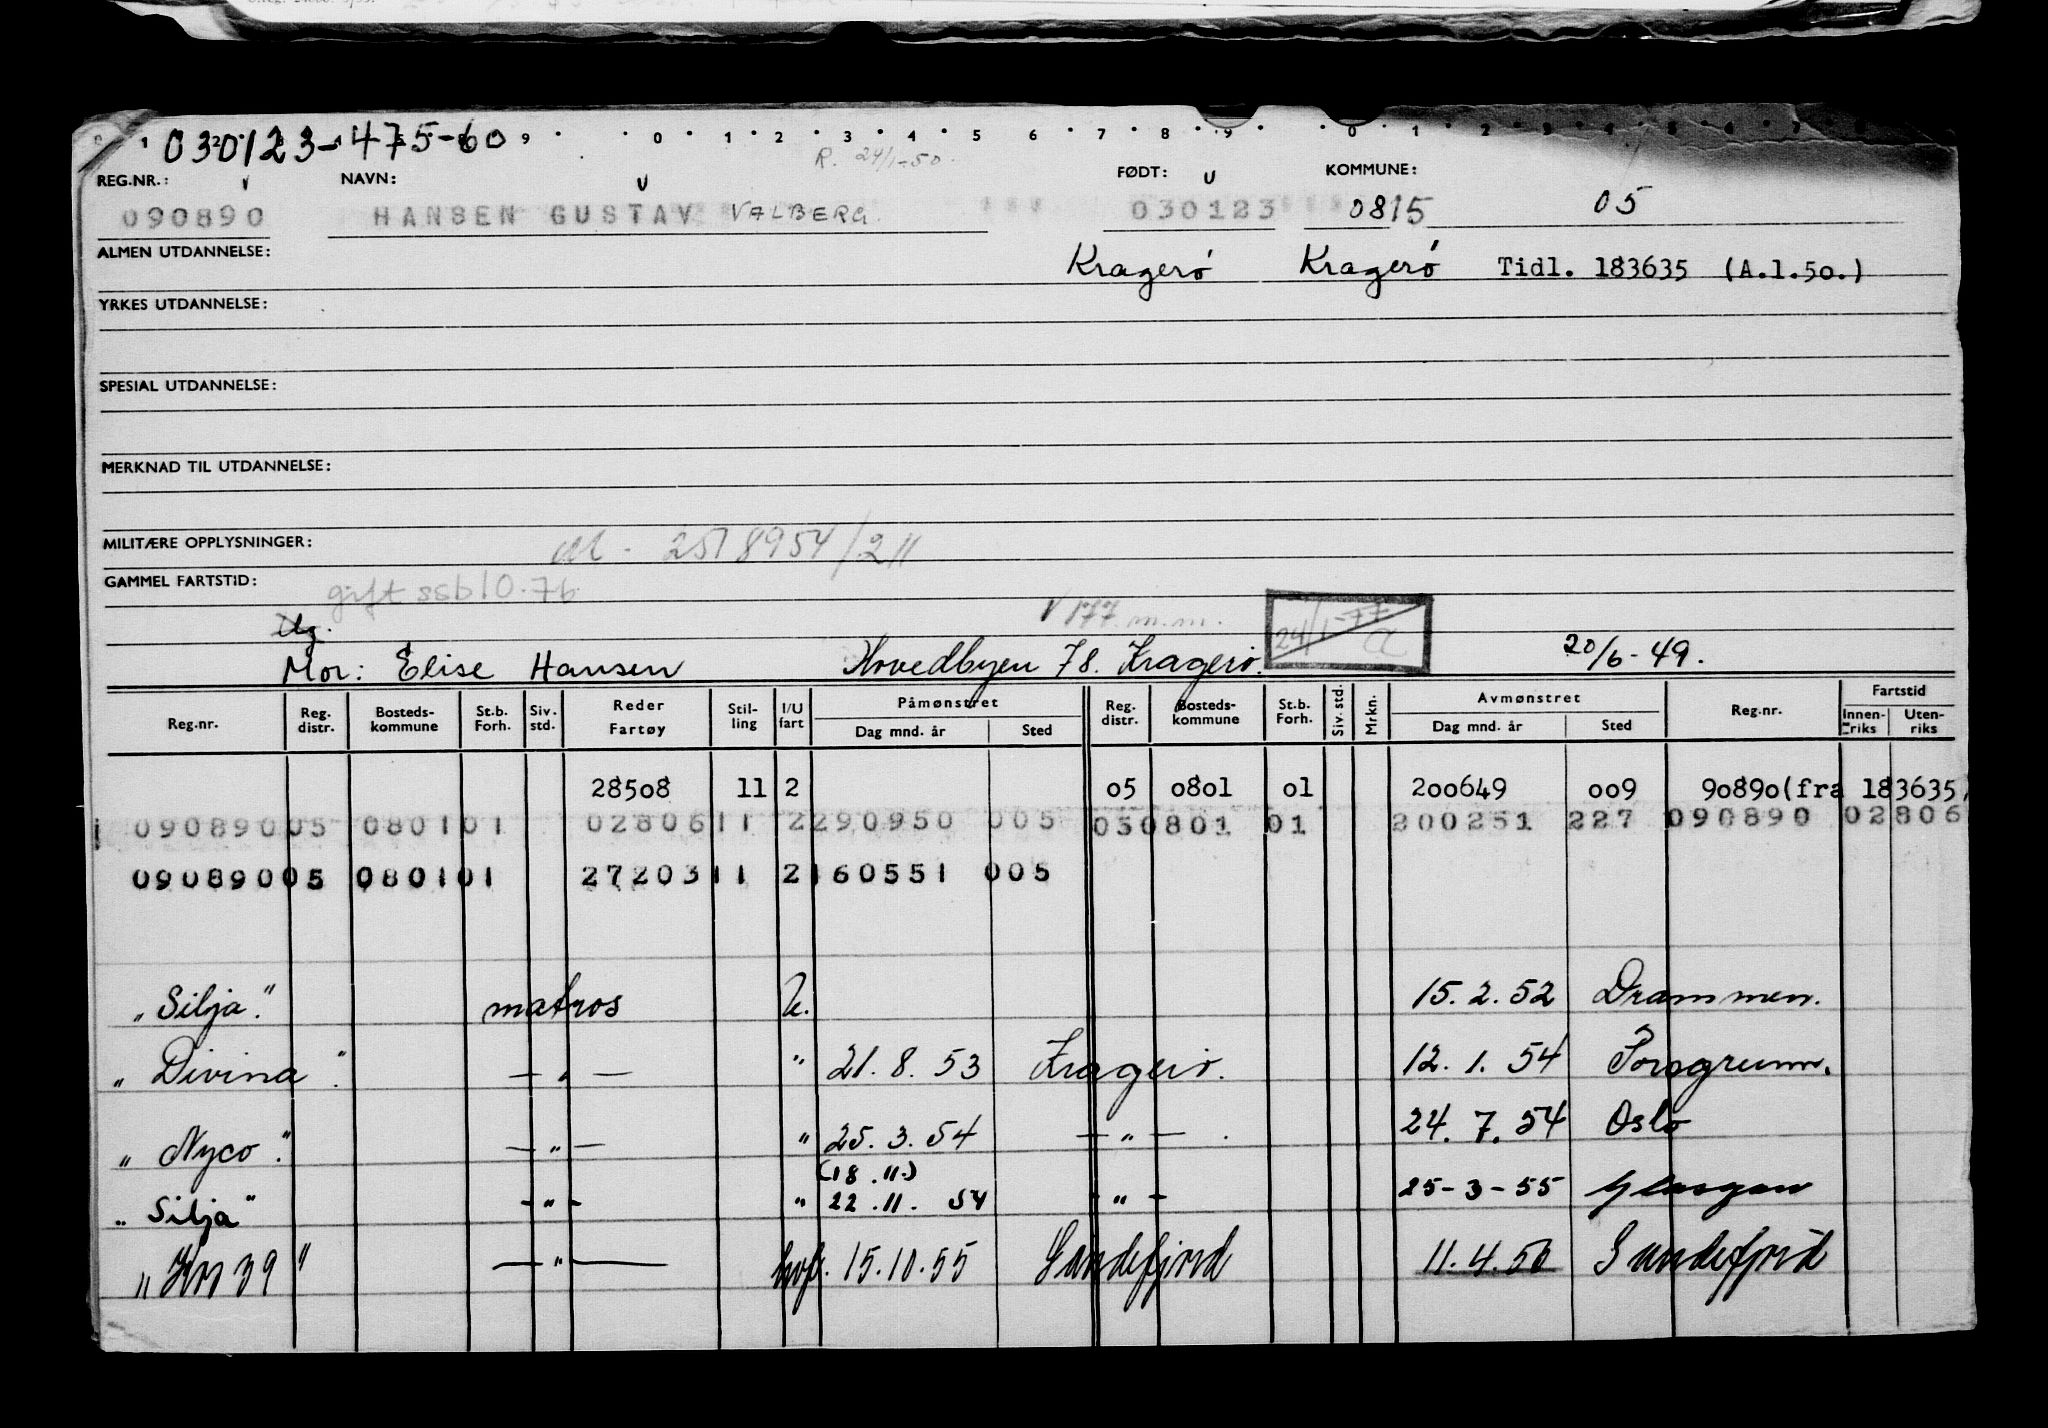 030123-475-60
9 0 1 2 3 4 5 6 7 8 9 0 1 2
R. 24/1-50.
REG.NR.: NAVN: FØDT: KOMMUNE:
090890 HANSEN GUSTAV VALBERG 030123 0815 05
ALMEN UTDANNELSE: Kragerø Kragerø Tidl. 183635 (A.1.50.)
YRKES UTDANNELSE:
SPESIAL UTDANNELSE:
MERKNAD TIL UTDANNELSE:
MILITÆRE OPPLYSNINGER: 2518954/211
GAMMEL FARTSTID: gift ssb 10.76
V 177 m.m. 24/1-77 a
Mor: Elise Hansen Hovedbyen 78. Kragerø. 20/6-49.
Reg.nr. Reg. distr. Bosteds- kommune St.b. Forh. Siv. std. Reder Fartøy Stil- ling I/U fart Påmønstret Dag mnd. år Sted Reg. distr. Bosteds- kommune St.b. Forh. Siv. std. Mrkn. Avmønstret Dag mnd. år Sted Reg.nr. Fartstid Innen- riks Uten- riks
28508 11 2 05 0801 01 200649 009 90890(fra 183635,
09089005 080101 0280611 2290950 005 030801 01 200251 227 090890 02806
09089005 080101 2720311 2160551 005
"Silja". matros U. 15.2.52 Drammen.
"Divina". —"— " 21.8.53 Kragerø. 12.1.54 Porsgrunn.
"Nyco". —"— " 25.3.54 —"— . 24.7.54 Oslo
(18.11.)
"Silja" -"- " 22.11.54 -"- 25-3-55 Glasgow
"Kos 39" —"— hvf. 15.10.55 Sandefjord 11.4.56 Sandefjord